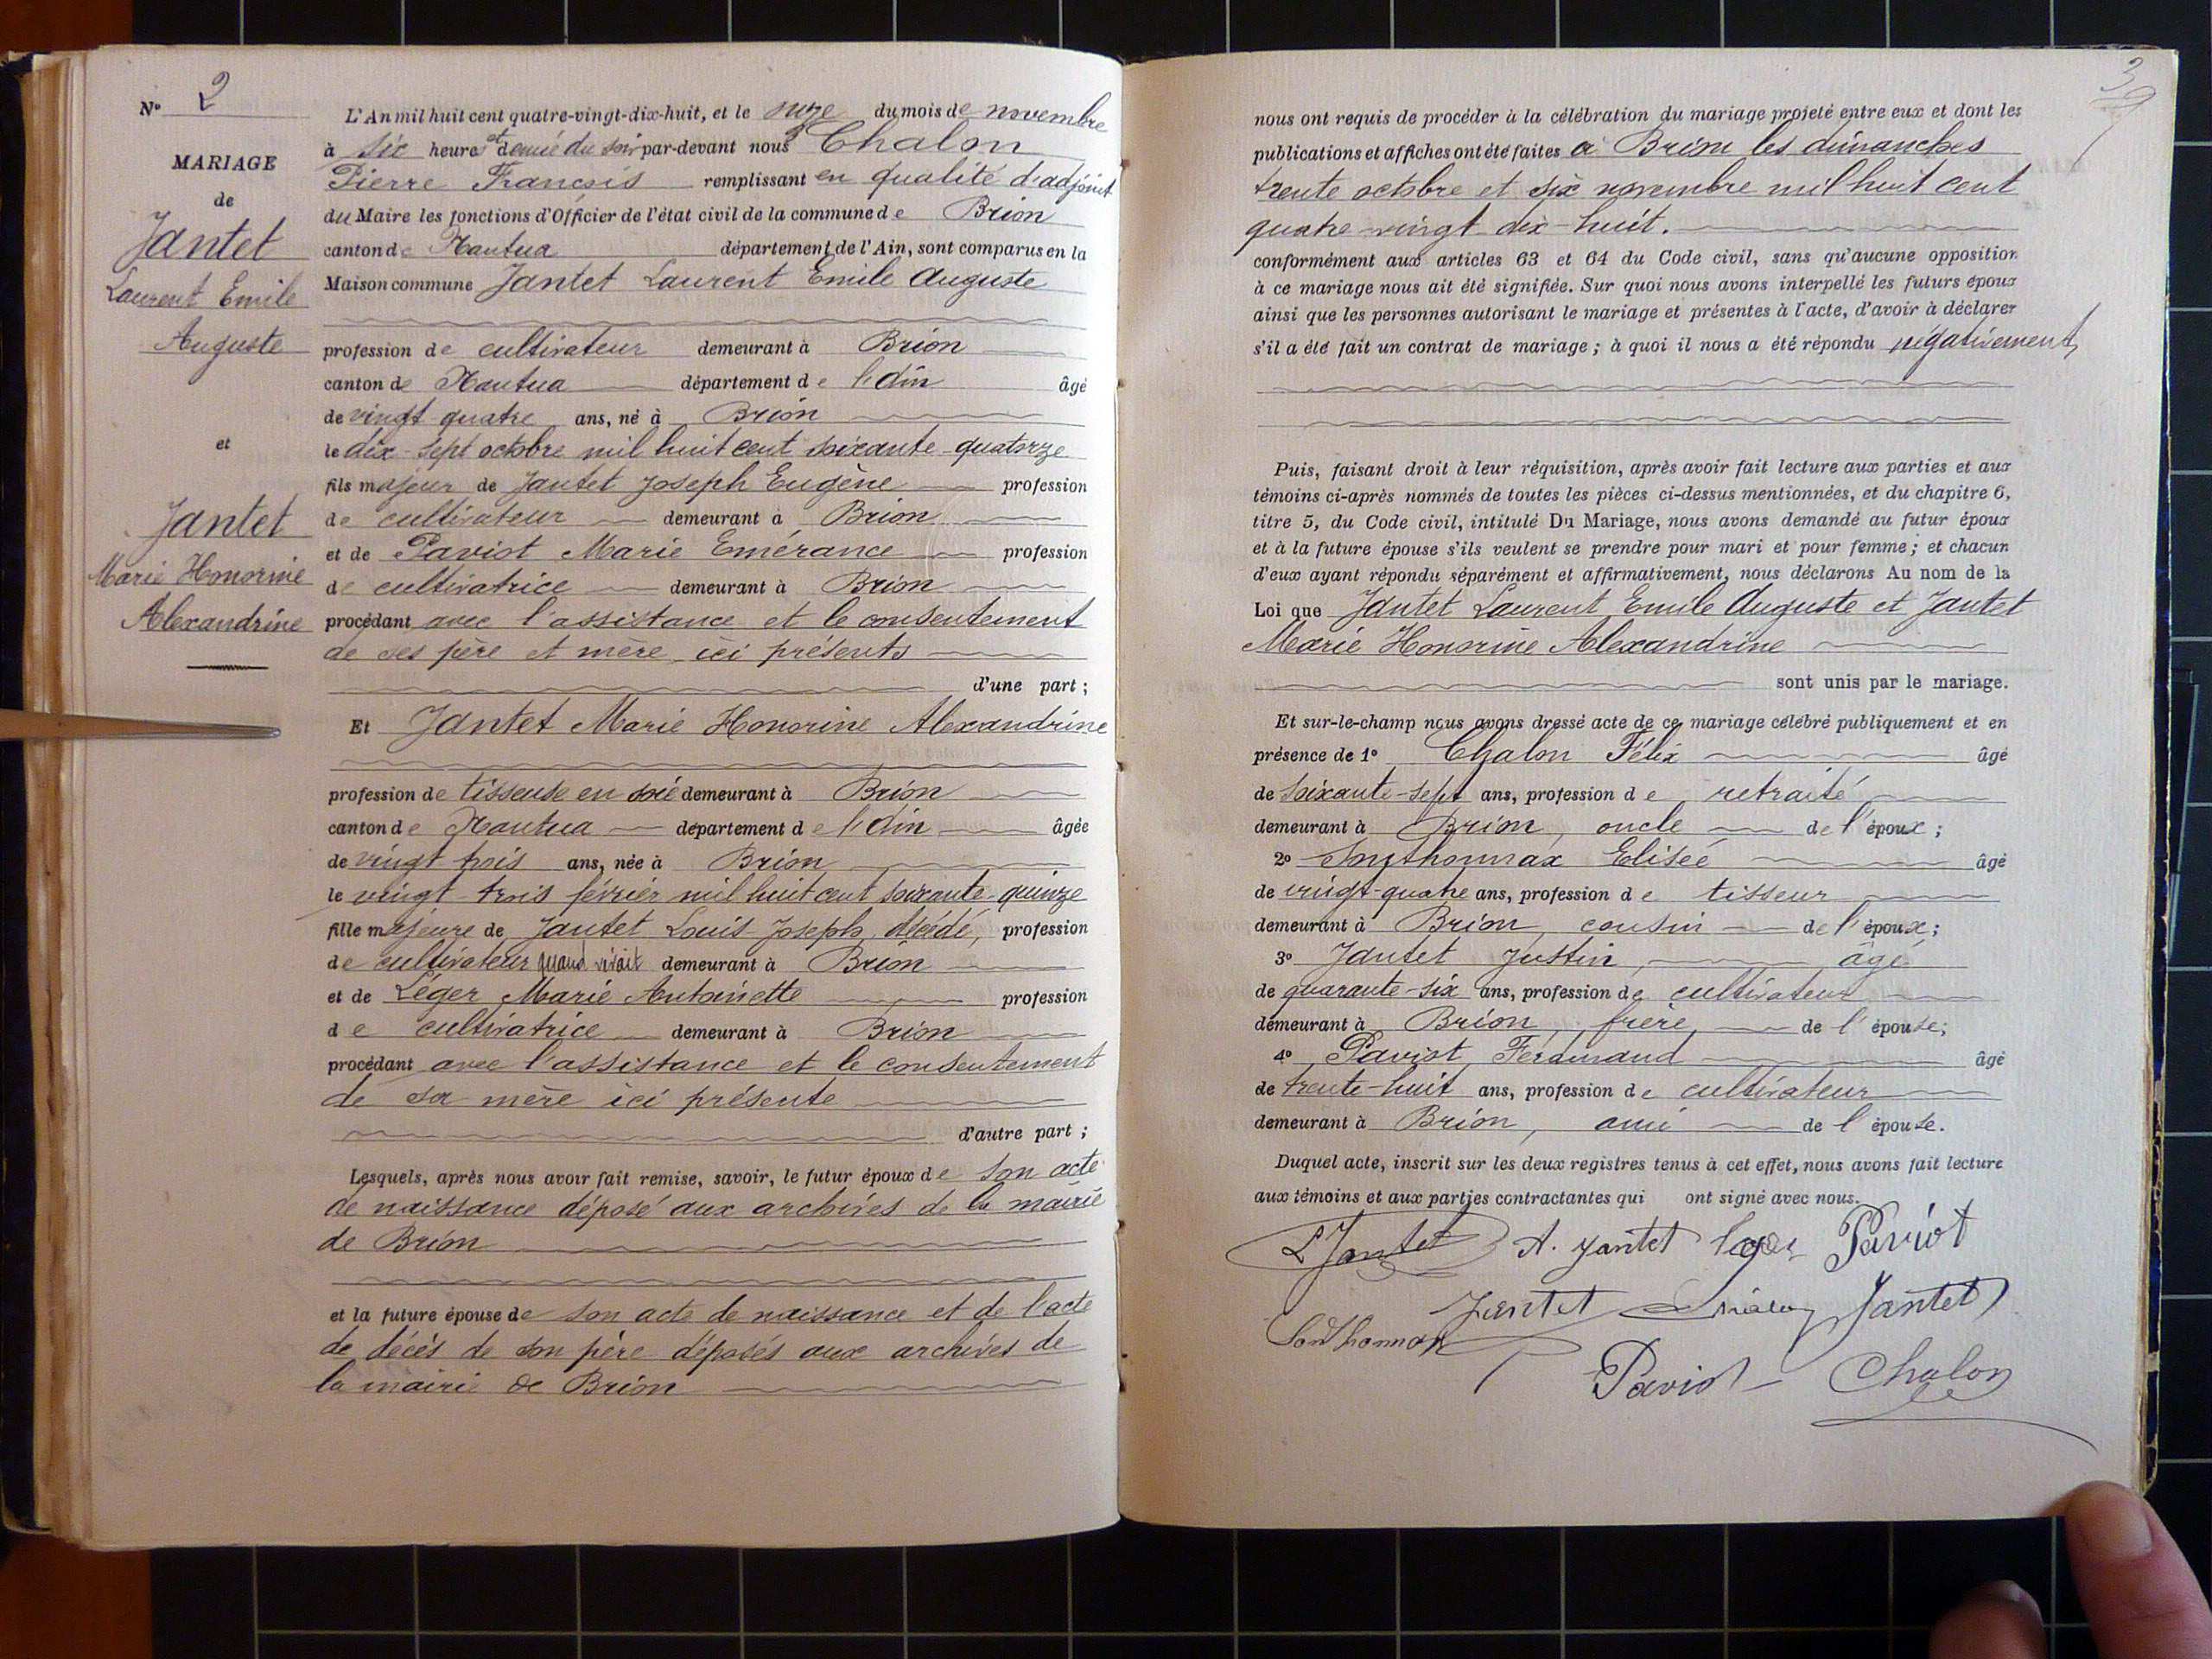 N° 2
MARIAGE
de
Jantet
Laurent Emile
Auguste
et
Jantet
Marie Honorine
Alexandrine
L'An mil huit cent quatre-vingt-dix-huit, et le onze du mois de novembre
à six heures et demie du soir par-devant nous Chalon
Pierre François remplissant en qualité d'adjoint
du Maire les fonctions d'Officier de l'état civil de la commune de Brion
canton de Nantua département de l'Ain, sont comparus en la
Maison commune Jantet Laurent Emile Auguste
profession de cultivateur demeurant à Brion
canton de Nantua département de l'Ain âgé
de vingt-quatre ans, né à Brion
le dix-sept octobre mil huit cent soixante-quatorze
fils majeur de Jantet Joseph Eugène profession
de cultivateur demeurant à Brion
et de Paviot Marie Emérance profession
de cultivatrice demeurant à Brion
procédant avec l'assistance et le consentement
de ses père et mère ici présents
d'une part ;
Et Jantet Marie Honorine Alexandrine
profession de tisseuse en soie demeurant à Brion
canton de Nantua département de l'Ain âgée
de vingt trois ans, née à Brion
le vingt-trois février mil huit cent soixante-quinze
fille majeure de Jantet Louis Joseph, décédé, profession
de cultivateur quand vivait demeurant à Brion
et de Léger Marie Antoinette profession
de cultivatrice demeurant à Brion
procédant avec l'assistance et le consentement
de sa mère ici présente
d'autre part ;
Lesquels, après nous avoir fait remise, savoir, le futur époux de son acte
de naissance déposé aux archives de la mairie
de Brion
et la future épouse de son acte de naissance et de l'acte
de décès de son père déposés aux archives de
la mairie de Brion
nous ont requis de procéder à la célébration du mariage projeté entre eux et dont les
publications et affiches ont été faites à Brion les dimanches
trente octobre et six novembre mil huit cent
quatre-vingt dix-huit.
conformément aux articles 63 et 64 du Code civil, sans qu'aucune opposition
à ce mariage nous ait été signifiée. Sur quoi nous avons interpellé les futurs époux
ainsi que les personnes autorisant le mariage et présentes à l'acte, d'avoir à déclarer
s'il a été fait un contrat de mariage ; à quoi il nous a été répondu négativement,
Puis, faisant droit à leur réquisition, après avoir fait lecture aux parties et aux
témoins ci-après nommés de toutes les pièces ci-dessus mentionnées, et du chapitre 6,
titre 5, du Code civil, intitulé Du Mariage, nous avons demandé au futur époux
et à la future épouse s'ils veulent se prendre pour mari et pour femme ; et chacun
d'eux ayant répondu séparément et affirmativement, nous déclarons Au nom de la
Loi que Jantet Laurent Emile Auguste et Jantet
Marie Honorine Alexandrine
sont unis par le mariage.
Et sur-le-champ nous avons dressé acte de ce mariage célébré publiquement et en
présence de 1° Chalon Félix âgé
de soixante-sept ans, profession de retraité
demeurant à Brion, oncle de l'époux ;
2° Sonthonnax Elisée âgé
de vingt-quatre ans, profession de tisseur
demeurant à Brion, cousin de l'époux ;
3° Jantet Justin âgé
de quarante-six ans, profession de cultivateur
demeurant à Brion, frère, de l'épouse ;
4° Paviot Ferdinand âgé
de trente-huit ans, profession de cultivateur
demeurant à Brion, ami de l'épouse.
Duquel acte, inscrit sur les deux registres tenus à cet effet, nous avons fait lecture
aux témoins et aux parties contractantes qui ont signé avec nous.
L Jantet A. Jantet Léger Paviot
Jantet Chalon Jantet
Sonthonnax
Paviot Chalon